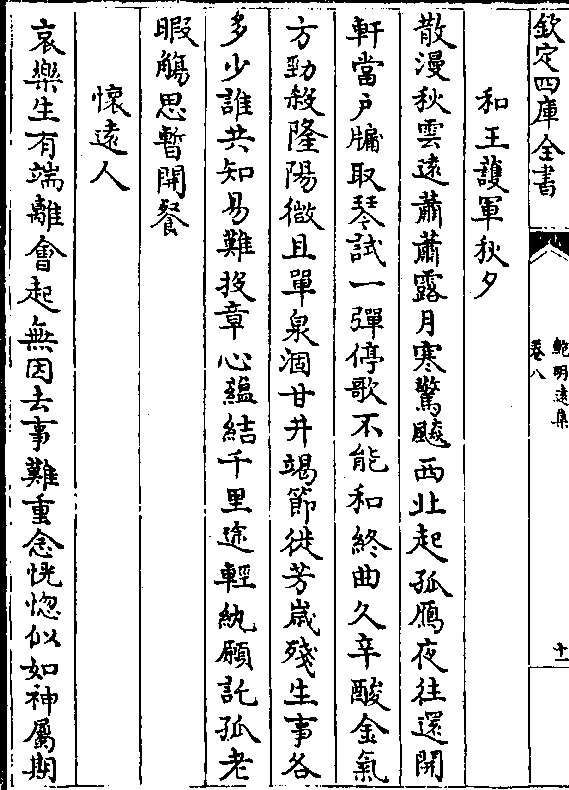 欽定四庫全書
鮑明遠集
卷八
十一
和王護軍秋夕
散漫秋雲遠蕭蕭露月寒驚飈西北起孤鴈夜往還開
軒當戶牖取琴試一彈停歌不能和終曲久辛酸金氣
方勁殺隆陽微且單泉涸甘井竭節徙芳歲殘生事各
多少誰共知易難投章心蘊結千里途輕紈願託孤老
暇觴思暫開餐
懷遠人
哀樂生有端離會起無因去事難重念恍惚似如神屬期